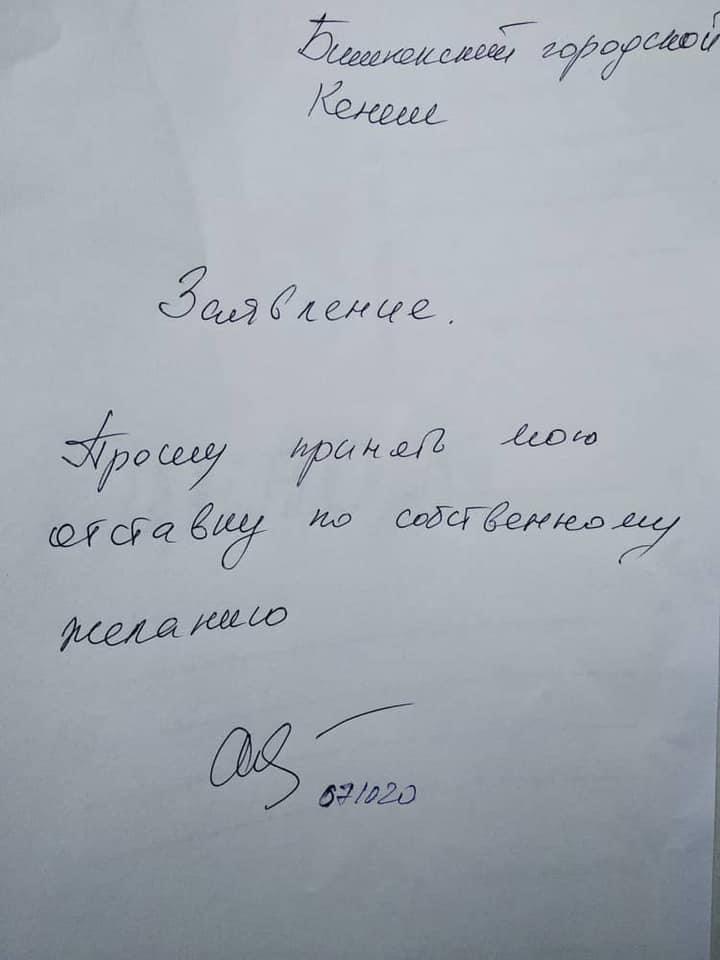 Бишкекский городской
Кенеш
Заявление.
Прошу принять мою
отставку по собственному
желанию
071020